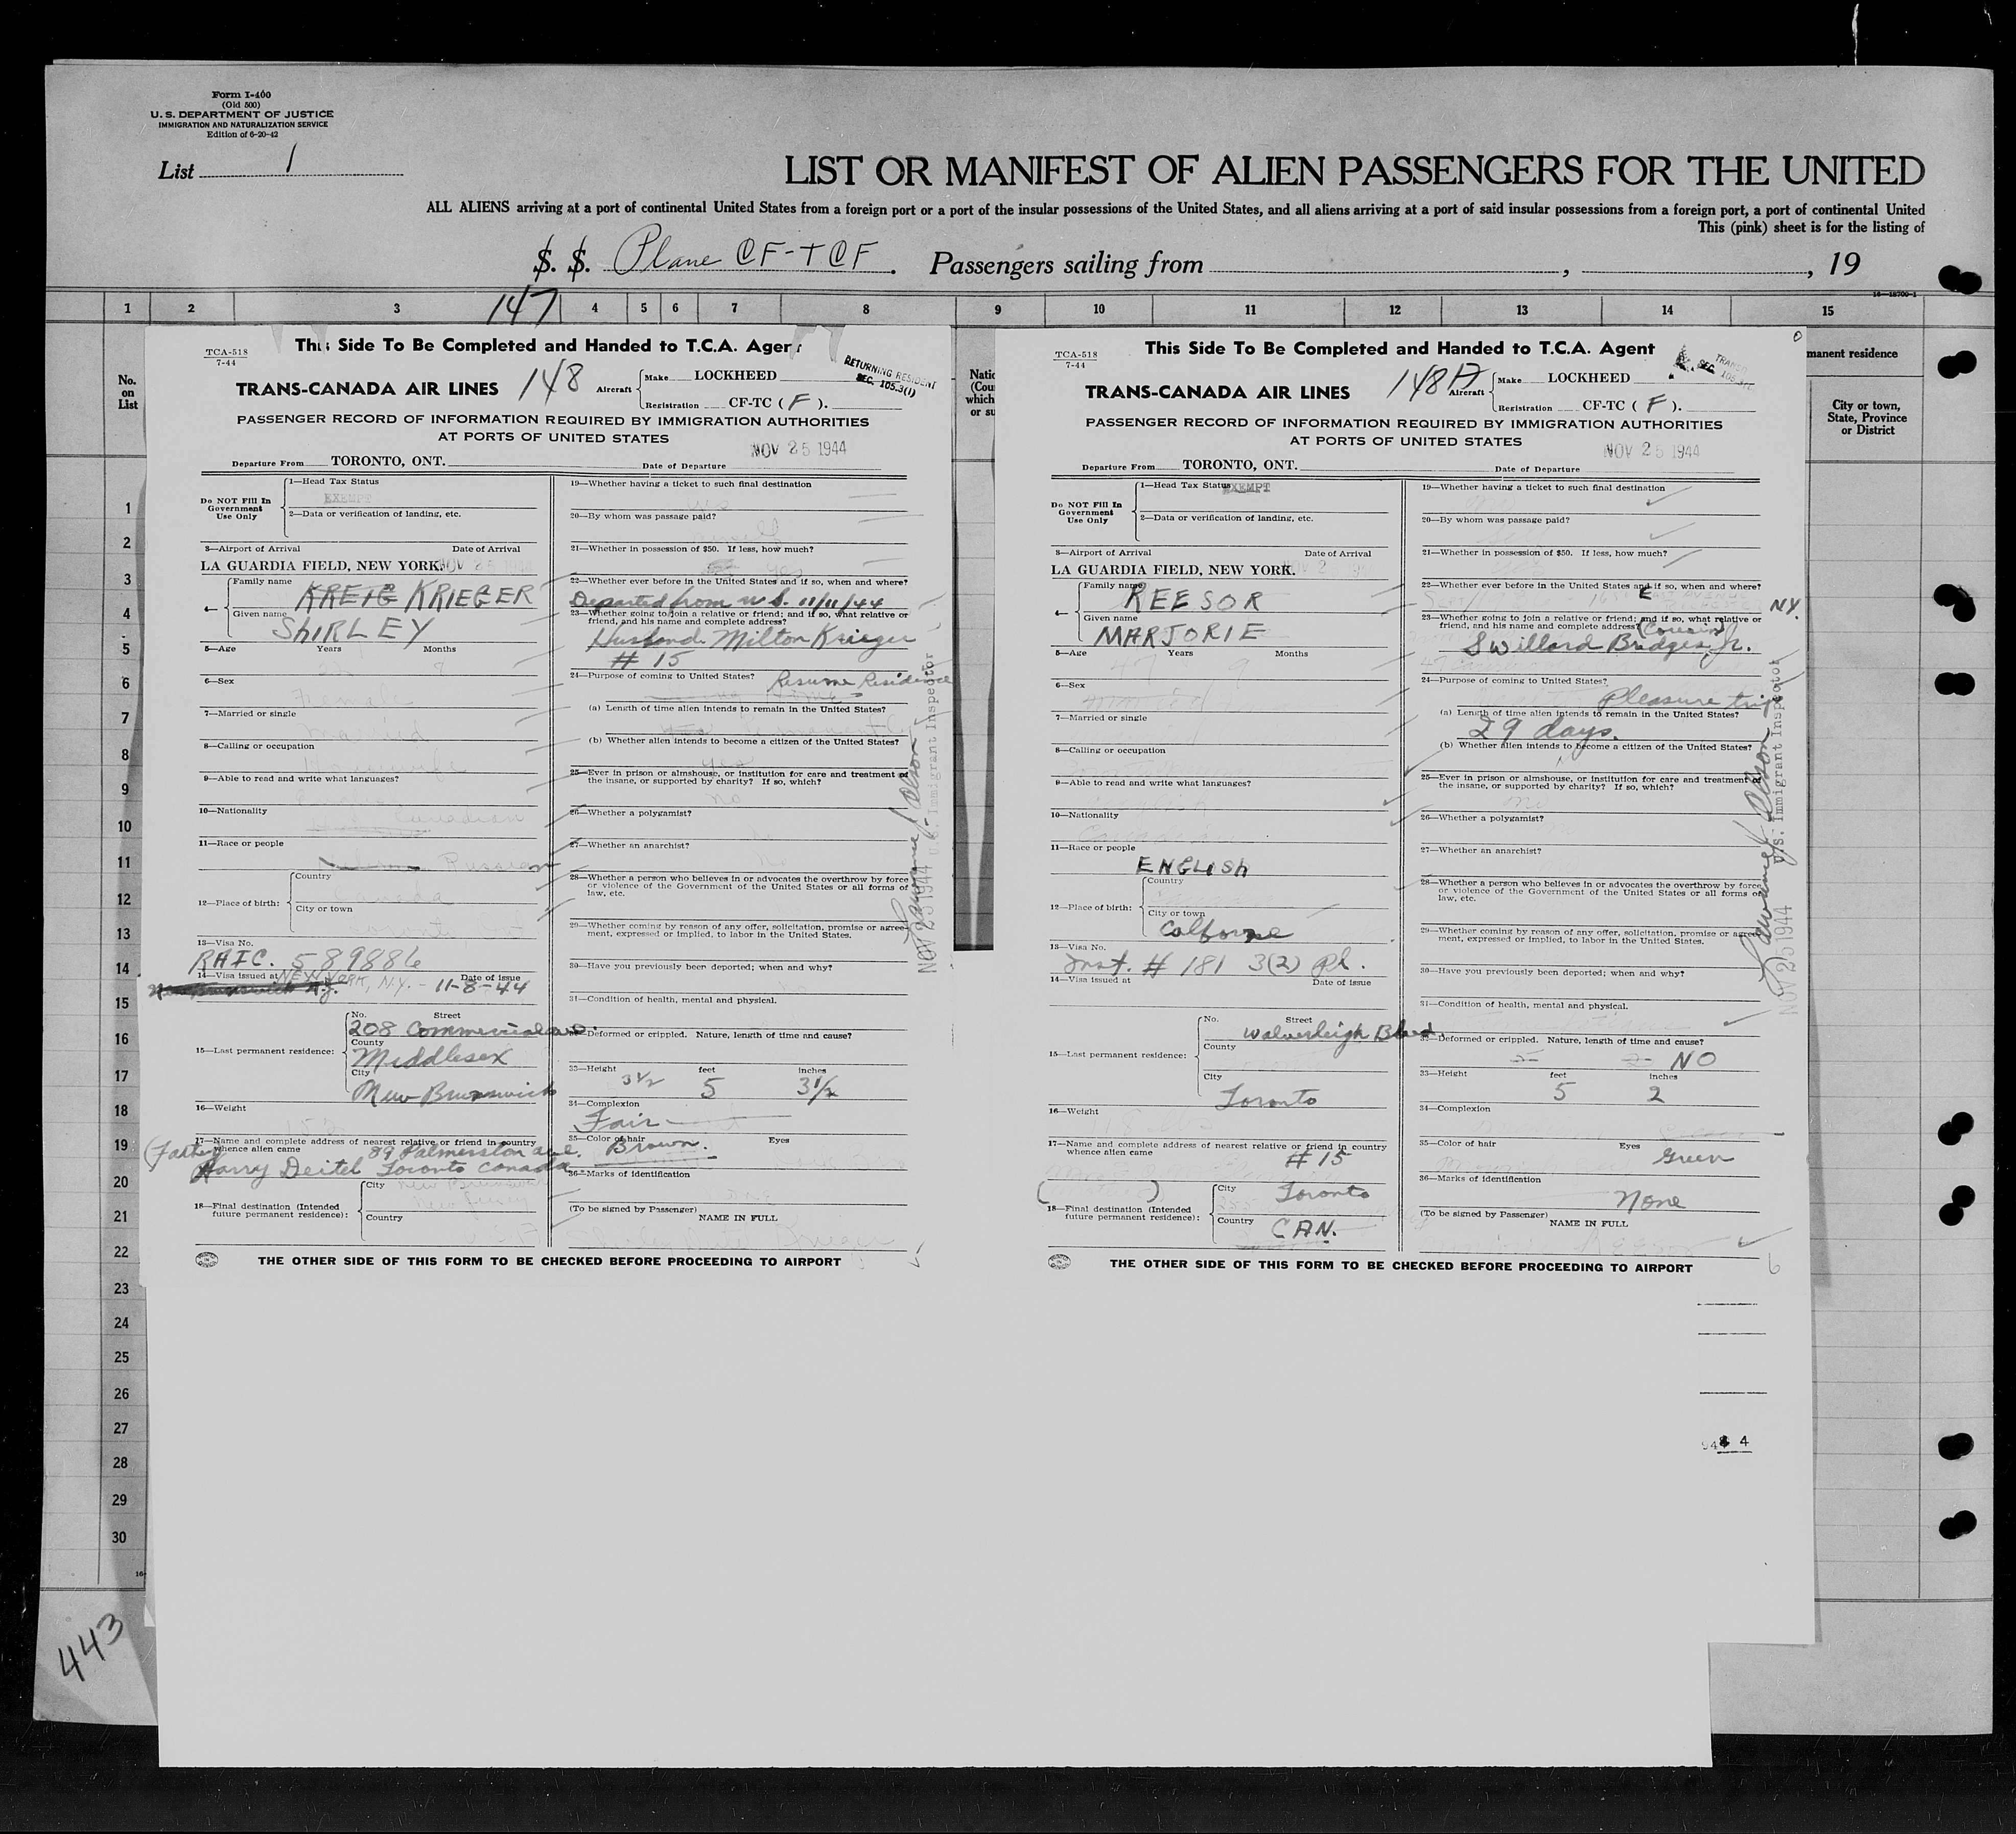 Form I-400
(Old 500)
U. S. DEPARTMENT OF JUSTICE
IMMIGRATION AND NATURALIZATION SERVICE
Edition of 6-20-42
List 1
LIST OR MANIFEST OF ALIEN PASSENGERS FOR THE UNITED
ALL ALIENS arriving at a port of continental United States from a foreign port or a port of the insular possessions of the United States, and all aliens arriving at a port of said insular possessions from a foreign port, a port of continental United
This (pink) sheet is for the listing of
S. S. Plane CF-TCF. Passengers sailing from , , 19
16—18700-1
1 2 3 147 4 5 6 7 8 9 10 11 12 13 14 15
No.
on
List
1
2
3
4
5
6
7
8
9
10
11
12
13
14
15
16
17
18
19
20
21
22
23
24
25
26
27
28
29
30
443
TCA-518
7-44
This Side To Be Completed and Handed to T.C.A. Agent
RETURNING RESIDENT
SEC. 105.3(1)
TRANS-CANADA AIR LINES 148 Aircraft
Make LOCKHEED
Registration CF-TC ( F ).
PASSENGER RECORD OF INFORMATION REQUIRED BY IMMIGRATION AUTHORITIES
AT PORTS OF UNITED STATES
Departure From TORONTO, ONT. Date of Departure NOV 25 1944
Do NOT Fill In
Government
Use Only
1—Head Tax Status
EXEMPT
2—Data or verification of landing, etc.
3—Airport of Arrival Date of Arrival
LA GUARDIA FIELD, NEW YORK. NOV 25
4— Family name KREIG KRIEGER
Given name SHIRLEY
5—Age Years Months
6—Sex
7—Married or single
married
8—Calling or occupation
9—Able to read and write what languages?
10—Nationality
Canadian
11—Race or people
Russian
12—Place of birth: Country
City or town
13—Visa No.
RAIC. 589886
14—Visa issued at Date of issue
New Brunswick N.J. NEW YORK, N.Y. - 11-8-44
15—Last permanent residence:
No. Street
208 Commercial ave.
County
Middlesex
City
New Brunswick
16—Weight
17—Name and complete address of nearest relative or friend in country
whence alien came
(Father) 89 Palmerston ave.
Harry Deitel Toronto Canada
18—Final destination (Intended
future permanent residence):
City New Brunswick
New Jersey
Country
19—Whether having a ticket to such final destination
20—By whom was passage paid?
21—Whether in possession of $50. If less, how much?
yes
22—Whether ever before in the United States and if so, when and where?
Departed from U.S. 11/11/44
23—Whether going to join a relative or friend; and if so, what relative or
friend, and his name and complete address?
Husband Milton Krieger
# 15
24—Purpose of coming to United States? Resume Residence
(a) Length of time alien intends to remain in the United States?
(b) Whether alien intends to become a citizen of the United States?
yes
25—Ever in prison or almshouse, or institution for care and treatment of
the insane, or supported by charity? If so, which?
no
26—Whether a polygamist?
27—Whether an anarchist?
no
28—Whether a person who believes in or advocates the overthrow by force
or violence of the Government of the United States or all forms of
law, etc.
29—Whether coming by reason of any offer, solicitation, promise or agree-
ment, expressed or implied, to labor in the United States.
30—Have you previously been deported; when and why?
31—Condition of health, mental and physical.
32—Deformed or crippled. Nature, length of time and cause?
33—Height feet inches
3½ 5 3½
34—Complexion
Fair
35—Color of hair Eyes
Brown.
36—Marks of identification
(To be signed by Passenger)
NAME IN FULL
THE OTHER SIDE OF THIS FORM TO BE CHECKED BEFORE PROCEEDING TO AIRPORT
NOV 25 1944 U.S. Immigrant Inspector
Natio
(Cou
which
or su
TCA-518
7-44
This Side To Be Completed and Handed to T.C.A. Agent
TRANS-CANADA AIR LINES 148 Aircraft
Make LOCKHEED
Registration CF-TC ( F ).
PASSENGER RECORD OF INFORMATION REQUIRED BY IMMIGRATION AUTHORITIES
AT PORTS OF UNITED STATES
Departure From TORONTO, ONT. Date of Departure NOV 25 1944
Do NOT Fill In
Government
Use Only
1—Head Tax Status EXEMPT
2—Data or verification of landing, etc.
3—Airport of Arrival Date of Arrival
LA GUARDIA FIELD, NEW YORK.
4— Family name REESOR
Given name MARJORIE
5—Age Years Months
47
6—Sex
7—Married or single
8—Calling or occupation
9—Able to read and write what languages?
10—Nationality
11—Race or people
ENGLISH
12—Place of birth: Country
City or town
Colborne
13—Visa No.
Inst. # 181 3(2) Pl.
14—Visa issued at Date of issue
15—Last permanent residence:
No. Street
Walverleigh Blvd.
County
City
Toronto
16—Weight
17—Name and complete address of nearest relative or friend in country
whence alien came
# 15
18—Final destination (Intended
future permanent residence):
City Toronto
Country CAN.
19—Whether having a ticket to such final destination
20—By whom was passage paid?
21—Whether in possession of $50. If less, how much?
22—Whether ever before in the United States and if so, when and where?
NY.
23—Whether going to join a relative or friend; and if so, what relative or
friend, and his name and complete address? (Cousin)
S Willard Bridges Jr.
24—Purpose of coming to United States?
Pleasure trip
(a) Length of time alien intends to remain in the United States?
29 days.
(b) Whether alien intends to become a citizen of the United States?
25—Ever in prison or almshouse, or institution for care and treatment of
the insane, or supported by charity? If so, which?
no
26—Whether a polygamist?
27—Whether an anarchist?
28—Whether a person who believes in or advocates the overthrow by force
or violence of the Government of the United States or all forms of
law, etc.
29—Whether coming by reason of any offer, solicitation, promise or agree-
ment, expressed or implied, to labor in the United States.
30—Have you previously been deported; when and why?
31—Condition of health, mental and physical.
32—Deformed or crippled. Nature, length of time and cause?
NO
33—Height feet inches
5 2
34—Complexion
35—Color of hair Eyes
Green
36—Marks of identification
None
(To be signed by Passenger)
NAME IN FULL
THE OTHER SIDE OF THIS FORM TO BE CHECKED BEFORE PROCEEDING TO AIRPORT
NOV 25 1944 U.S. Immigrant Inspector
manent residence
City or town,
State, Province
or District